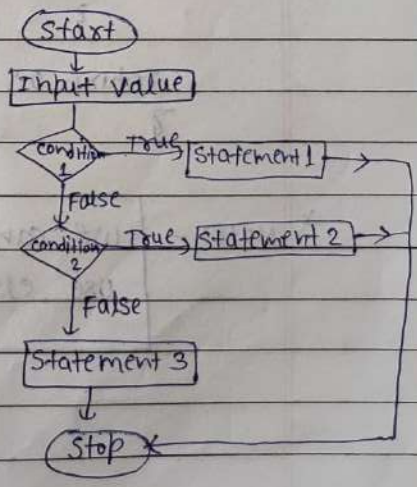 Start
Input value
condition
1
True
Statement 1
False
condition
2
True
Statement 2
False
Statement 3
Stop